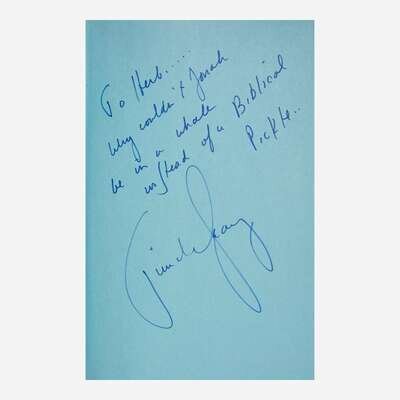 To Herb.....
Why couldn't Jonah
be in a whale
instead of a Biblical
Pickle..